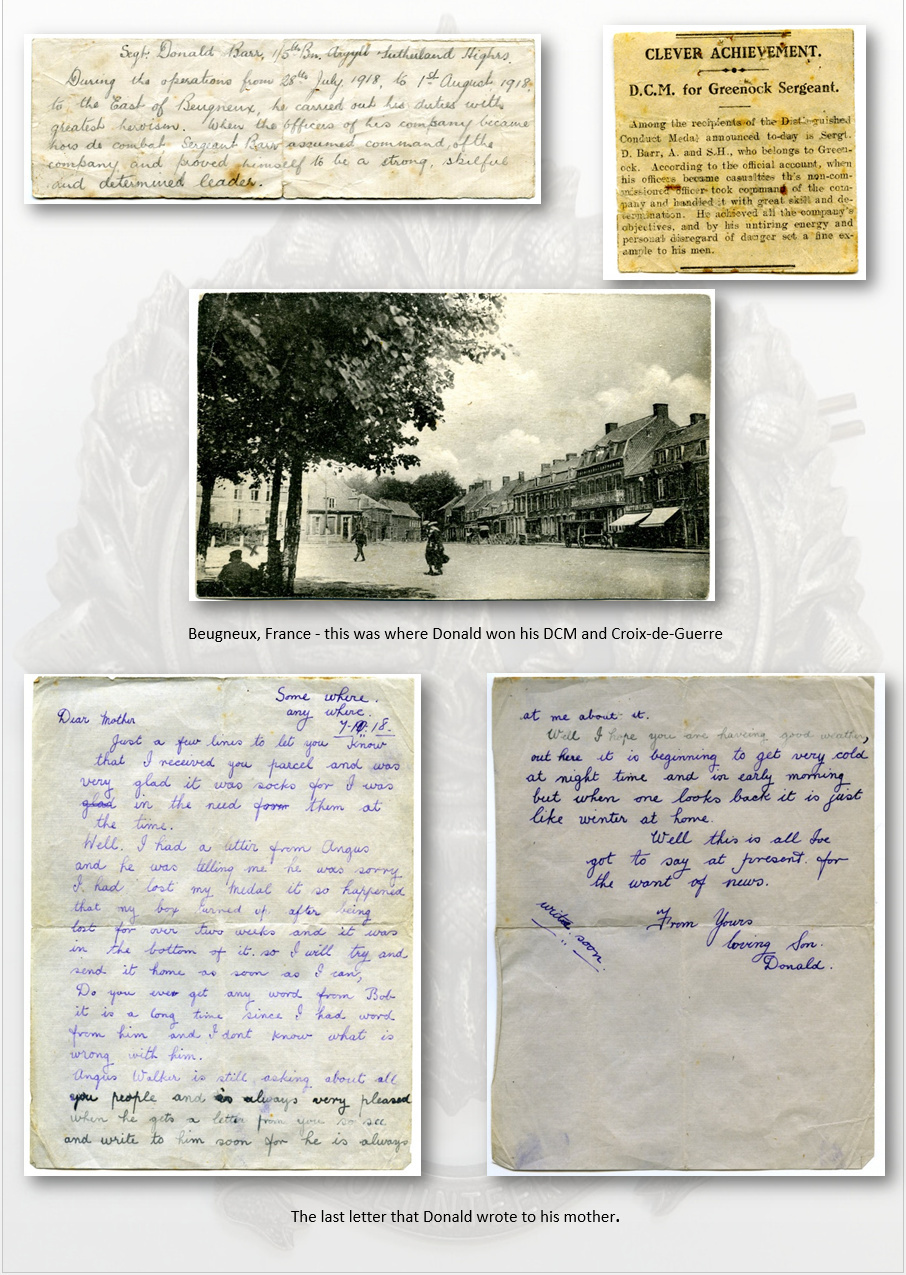 Sergt. Donald Barr, 1/5th Bn. Argyll Sutherland Highrs.
During the operations from 28th July, 1918, to 1st August, 1918,
to the East of Beugneux, he carried out his duties with
greatest heroism. When the officers of his company became
hors de combat, Sergeant Barr assumed command of the
company and proved himself to be a strong, skilful
and determined leader.
CLEVER ACHIEVEMENT.
D.C.M. for Greenock Sergeant.
Among the recipients of the Distinguished
Conduct Medal announced to-day is Sergt.
D. Barr, A. and S.H., who belongs to Green-
ock. According to the official account, when
his officers became casualties this non-com-
missioned officer took command of the com-
pany and handled it with great skill and de-
termination. He achieved all the company's
objectives, and by his untiring energy and
personal disregard of danger set a fine ex-
ample to his men.
Beugneux, France - this was where Donald won his DCM and Croix-de-Guerre
Some where.
any where.
7-10-18.
Dear Mother
Just a few lines to let you know
that I received you parcel and was
very glad it was socks for I was
glad in the need form them at
the time.
Well. I had a letter from Angus
and he was telling me he was sorry
I had lost my Medal it so happened
that my box turned up after being
lost for over two weeks and it was
in the bottom of it. so I will try and
send it home as soon as I can,
Do you ever get any word from Bob
it is a long time since I had word
from him and I dont know what is
wrong with him.
Angus Walker is still asking about all
you people and is always very pleased
when he gets a letter from you so see
and write to him soon for he is always
at me about it.
Well I hope you are having good weather,
out here it is beginning to get very cold
at night time and in early morning
but when one looks back it is just
like winter at home.
Well this is all Ive
got to say at present. for
the want of news.
From Yours
loving Son.
Donald.
write soon.
The last letter that Donald wrote to his mother.